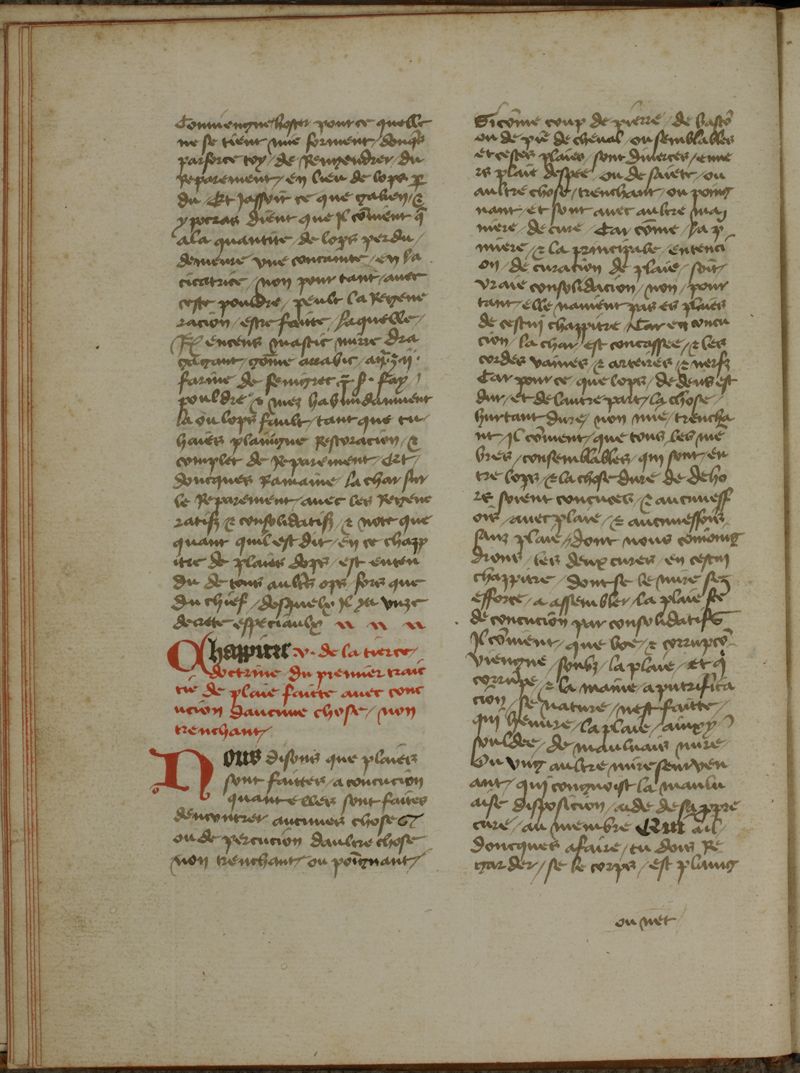 Conviengne hoster pour ce quelle
ne se tient mie forment / doncqs
parforce toy / de Rengendrer / du
Reparement / en lieu de lops per
du / Et jassoit ce que galien / &
ypocras dient que jl coment q
a la quantite / de lops perdu /
demeure vne concauite / en la
cicatrice / non pour tant / auec
ceste pouldre / peult la Regene
racion / estre faitte / laquelle /
Rx encens mastic mirre dra
gagant / gome arrabic
farine de fenigrec
pouldre & metz habundanment
la ou lops fault / tant que tu
haies plainiere Restoracion / &
complet de Reparement / Et
doncques Ramaine / la char sur
le Reparement / auec les Regene
ratifz & consolidatifz / & note que
quant quil est dit / en ce chapp
itre de plaies dops / est enten
du de tous aultres ops / fors que
du chief / desquelx jl y a vnze
decrete especiaulx
Chappitre v. de la tierce /
doctrine du premier trait
tie de plaie faitte auec conc
ucion daucune chose / non
trenchant /
Nous disons que plaies
sont faittes / a concucion
quant elles sont faites
dencontrer aucunes choses
ou de percucion daultre chose
non trenchant / ou poignant /
Si come coup de pierre / de baston
ou de pie de cheual / ou semblables
et cestes plaies / sont diuerces / enue
rs plaie despee / ou de saiete / ou
aultre chose / trenchant / ou poing
nant / et sont auec aultre ma
niere / de cure / Car come / la p
miere / & la principale / entenci
on / de curacion de plaie / soit /
vraie consolidacion / non / pour
tant / elle nauient pas es plaies
de cestui chappitre / Car en concu
cion / la char / est concassee / & les
cordes vaines / & arteires / & nerfz
Car pour ce / que lops / dedens est
dur / et de lautre part / la chose /
hurtant dure / non mie / trencha
nt / jl coment / que tous les me
bres / consemblables / qui sont / en
tre lops / & la chose dure de deho
rs soient concuces / & aucuneff
ois / auec plaie / & aucuneffois
sanz plaie / dont nous comoing
drons / les deux cures / en cestui
chappitre / dont se le mire
efforce / a assembler / la plaie
de concucion par consolidatifs
jl coment / que boe / & corrupco
viengne / soubz la plaie / et q
corrupe / & la maine a putrifica
cion / se nature / nest faitte /
qui heuure / la plaie / ainxy
souldee / de mauluais mire
Ou vng aultre mire seuruen
ant / qui congnoist la maulu
aise disposicion / aide de sa ppre
cure / au membre Qui ail
doncques afaire / tu dois Re
garder / se le corps / est plaing
ou net /